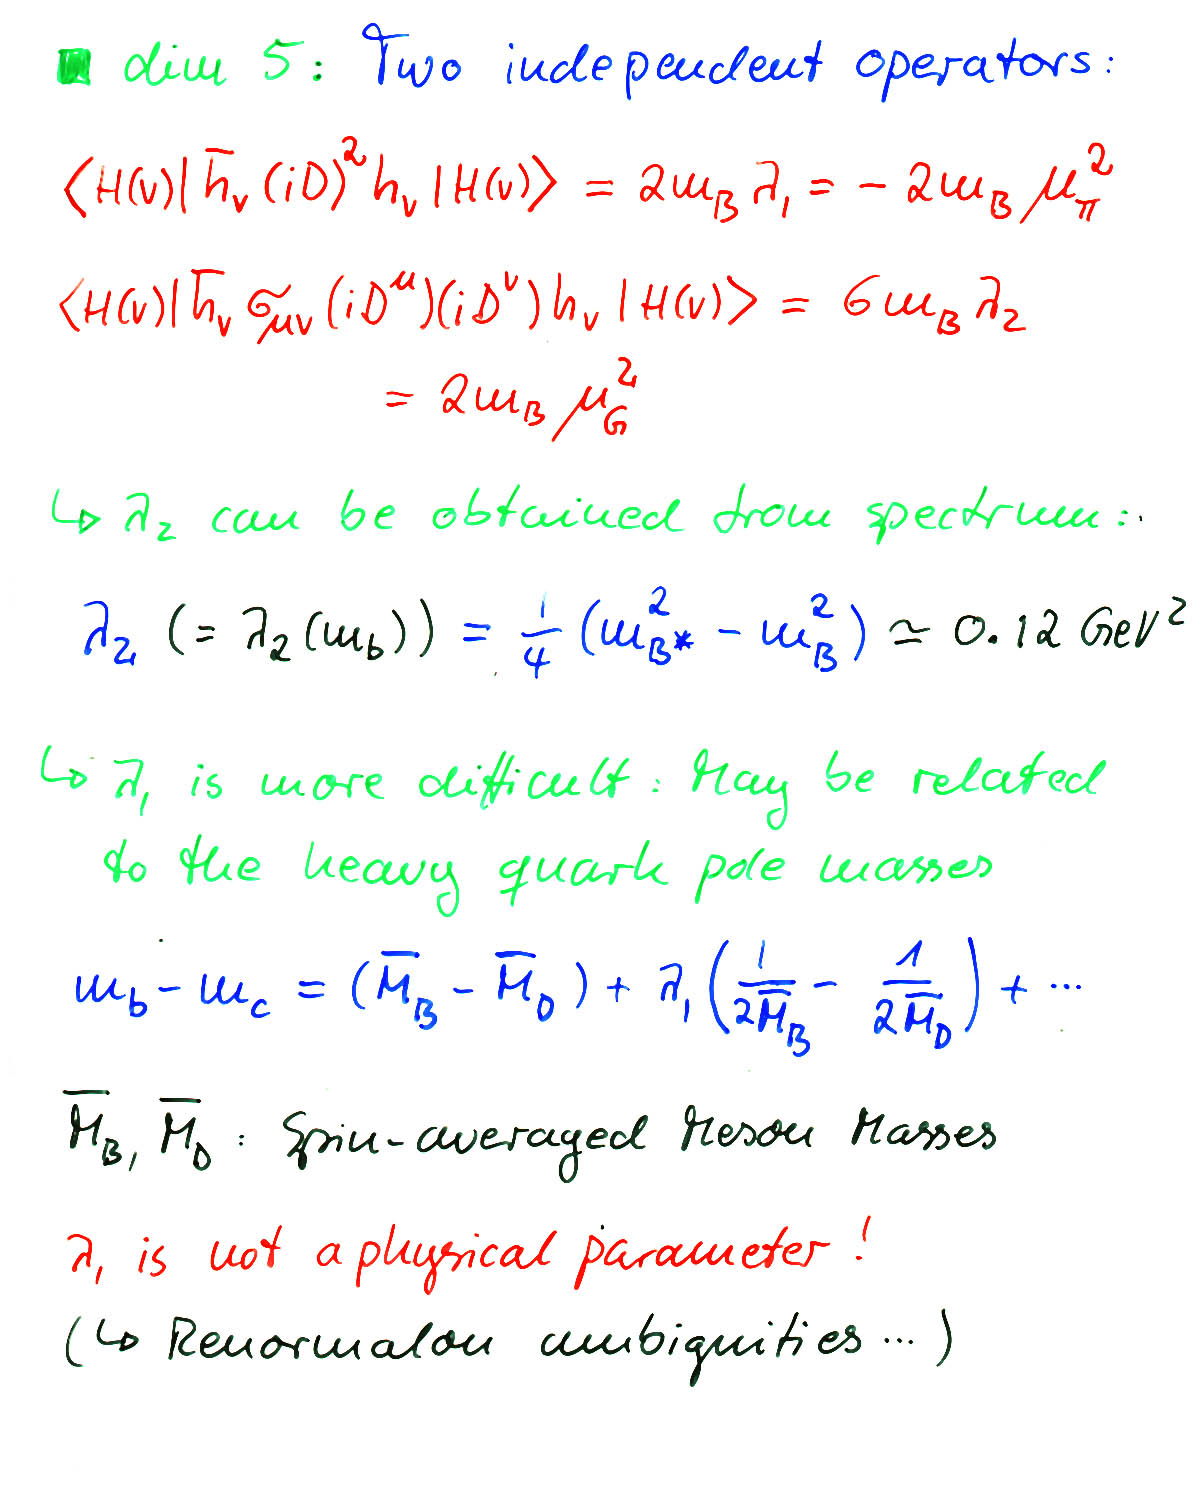 dim 5: Two independent operators:
⟨H(v)| h̄_v (iD)² h_v |H(v)⟩ = 2m_B λ_1 = - 2m_B μ_π²
⟨H(v)| h̄_v σ_μν (iD^μ)(iD^ν) h_v |H(v)⟩ = 6m_B λ_2
= 2m_B μ_G²
↳ λ_2 can be obtained from spectrum:
λ_2 (= λ_2(m_b)) = 1/4 (m_B*² - m_B²) ≃ 0.12 GeV²
↳ λ_1 is more difficult: May be related
to the heavy quark pole masses
m_b - m_c = (M̄_B - M̄_D) + λ_1 (1/(2M̄_B) - 1/(2M̄_D)) + ...
M̄_B, M̄_D : Spin-averaged Meson Masses
λ_1 is not a physical parameter!
(↳ Renormalon ambiguities ... )